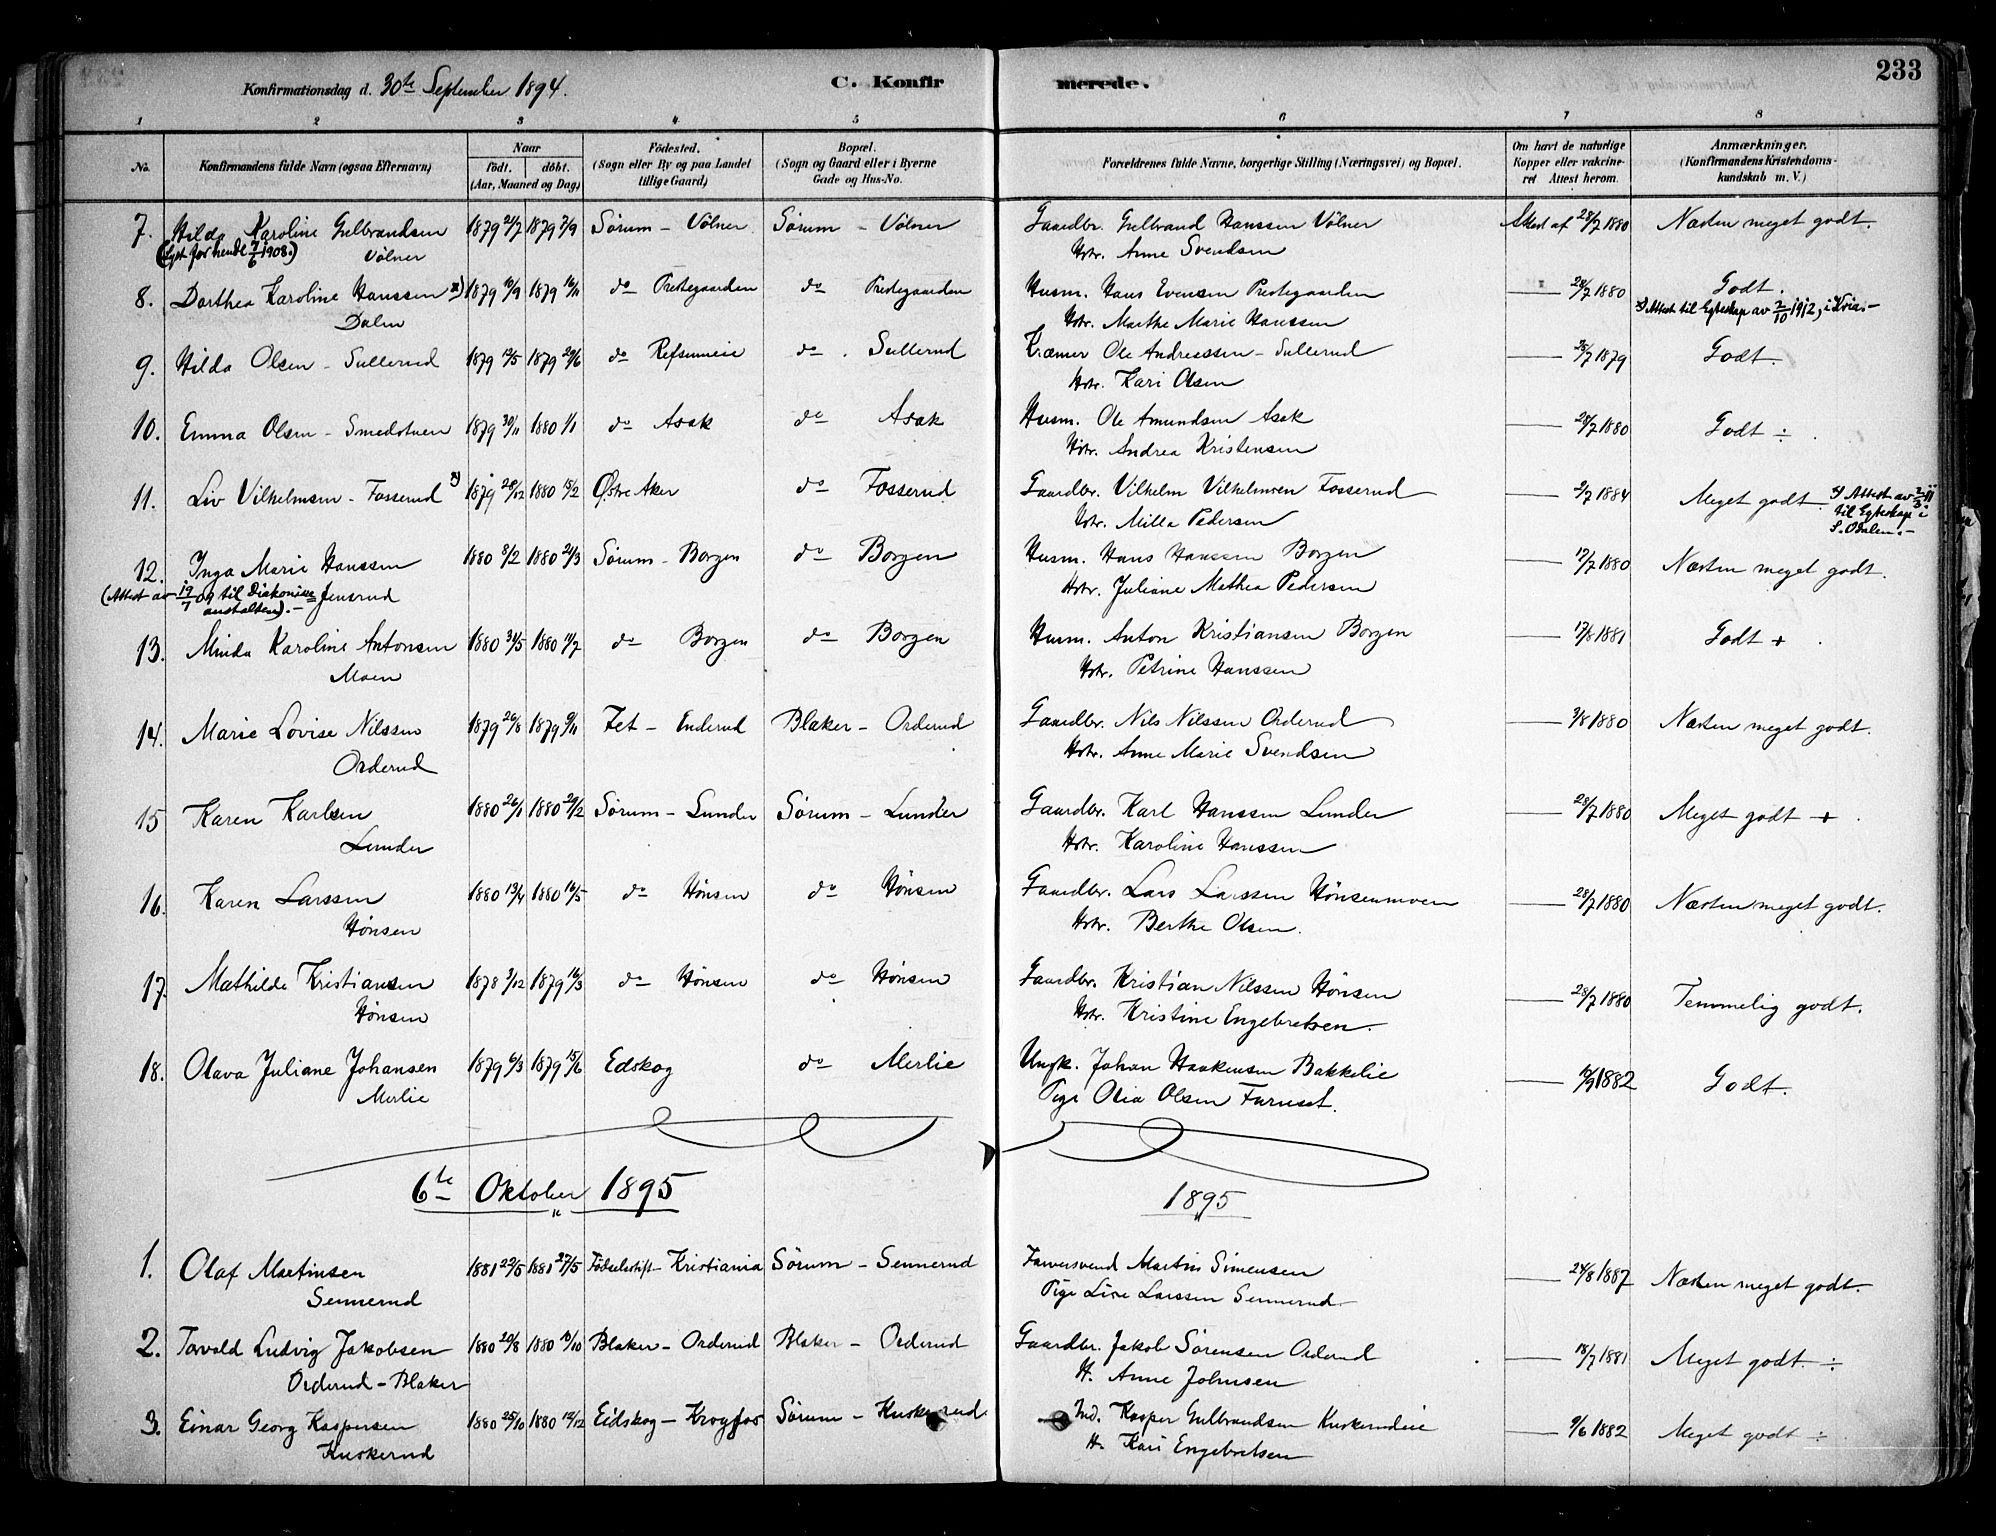 233
Konfirmationsdag d. 30te September 1894. C. Konfir merede.
1 2 3 4 5 6 7 8
No. Konfirmandens fulde Navn (ogsaa Efternavn) Naar født. døbt. (Aar, Maaned og Dag) Fødested. (Sogn eller By og paa Landet tillige Gaard) Bopæl. (Sogn og Gaard eller i Byerne Gade og Hus-No. Forældrenes fulde Navne, borgerlige Stilling (Næringsvei) og Bopæl. Om havt de naturlige Kopper eller vakcineret Attest herom. Anmærkninger. (Konfirmandens Kristendomskundskab m. V.)
7. Hilda Karoline Gulbrandsen 1879 21/7 1879 7/9 Sørum - Völner Sørum - Völner Gaardbr. Gulbrand Hanssen Völner Attest af 28/7 1880 Næsten meget godt.
(Lyst for hende 7/6 1908.) Völner Hstr. Anne Svendsen
8. Dorthea Karoline Hanssen x) 1879 10/9 1879 16/11 do Prestegaarden do Prestegaarden Husm. Hans Evensen Prestegaarden — 28/7 1880 Godt.
Dalen Hstr. Marthe Marie Hanssen x) Attest til Egteskap av 2/10 1912, i Kria.-
9. Hilda Olsen - Sullerud 1879 12/5 1879 29/6 do Refsumeie do. Sullerud Kræmer Ole Andreassen - Sullerud — 25/7 1879 Godt.
Hstr. Kari Olsen
10. Emma Olsen - Smedstuen 1879 30/11 1880 1/1 do Asak do Asak Husm. Ole Amundsen Asak — 28/7 1880 Godt ÷
Hstr. Andrea Kristensen
11. Liv Vilhelmsen - Fosserud x) 1879 28/12 1880 15/2 Østre Aker do Fosserud Gaardbr. Vilhelm Vilhelmsen Fosserud — 2/7 1884 Meget godt. x) Attest av 2/3 11 til Egteskap i S. Odalen.-
Hstr. Milla Pedersen
12. Inga Marie Hanssen 1880 8/2 1880 21/3 Sørum - Borgen do Borgen Husm. Hans Hanssen Borgen — 17/7 1880 Næsten meget godt.
(Attest av 19/7 09 til Diakonisse anstalten).- Jensrud Hstr. Juliane Mathea Pedersen
13. Minda Karoline Antonsen 1880 31/5 1880 11/7 do Borgen do Borgen Husm. Anton Kristiansen Borgen — 17/8 1881 Godt +
Moen Hstr. Petrine Hanssen
14. Marie Lovise Nilssen 1879 26/8 1879 9/11 Fet - Enderud Blaker - Orderud Gaardbr. Nils Nilssen Orderud — 3/8 1880 Næsten meget godt.
Orderud Hstr. Anne Marie Svendsen
15 Karen Karlsen 1880 26/1 1880 29/2 Sørum - Lunder Sørum - Lunder Gaardbr. Karl Hanssen Lunder — 28/7 1880 Meget godt +
Lunder Hstr. Karoline Hanssen
16. Karen Larssen 1880 13/4 1880 16/5 do Hønsen do Hønsen Gaardbr. Lars Larssen Hønsenmoen — 28/7 1880 Næsten meget godt.
Hønsen Hstr. Berthe Olsen.
17. Mathilde Kristiansen 1878 3/12 1879 16/3 do Hønsen do Hønsen Gaardbr. Kristian Nilssen Hønsen — 28/7 1880 Temmelig godt.
Hønsen Hstr. Kristine Engebretsen.
18. Olava Juliane Johansen 1879 6/3 1879 15/6 Edskog do Merlie Ungk. Johan Haakensen Bakkelie — 12/9 1882 Godt.
Merlie Pige Olia Olsen Furuset.
6te Oktober 1895 1895
1. Olaf Martinsen 1881 22/5 1881 27/5 Fødselsstift - Kristiania Sørum - Sennerud Farversvend Martin Simensen — 24/8 1887 Næsten meget godt.
Sennerud Pige Lise Larssen Sennerud.
2. Torvald Ludvig Jakobsen 1880 20/8 1880 10/10 Blaker - Orderud Blaker - Orderud Gaardbr. Jakob Sørensen Orderud — 18/7 1881 Meget godt. ÷
Orderud - Blaker H. Anne Johnsen
3. Einar Georg Kaspersen 1880 25/10 1880 12/12 Eidskog - Krogfos Sørum - Kuskerud Ind. Kasper Gulbrandsen Kuskerudeie — 9/6 1882 Meget godt ÷
Kuskerud H. Kari Engebretsen